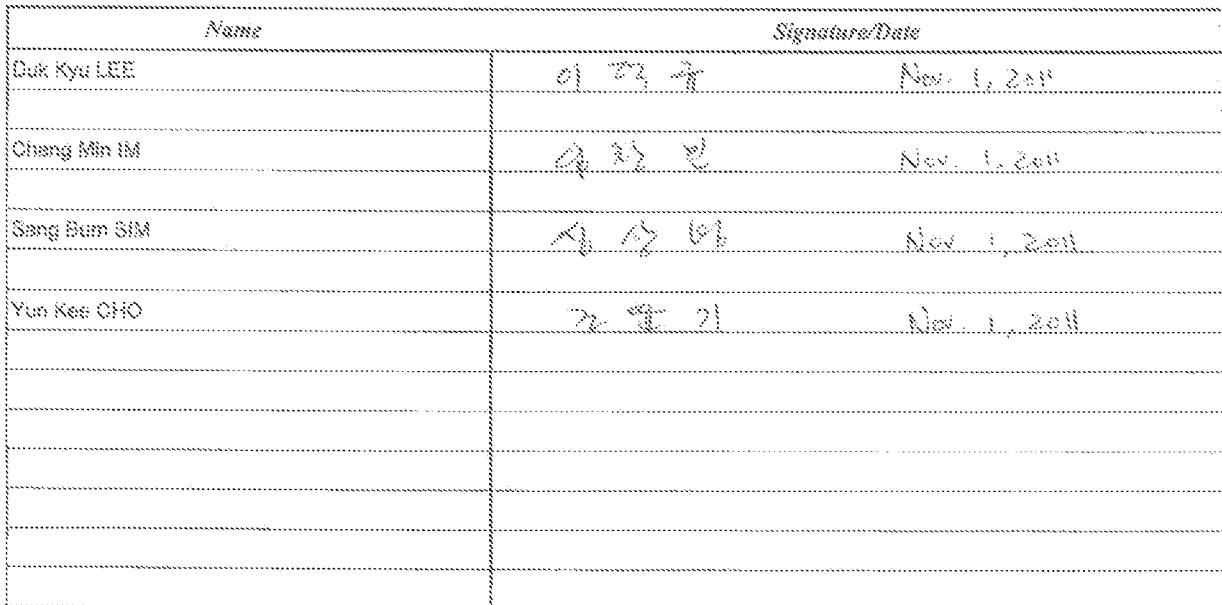 Name Signature/Date
Duk Kyu LEE 이 덕 규 Nov. 1, 2011
Chang Min IM 임 창 민 Nov. 1, 2011
Sang Bum SIM 심 상 범 Nov. 1, 2011
Yun Kee CHO 조 윤 기 Nov. 1, 2011